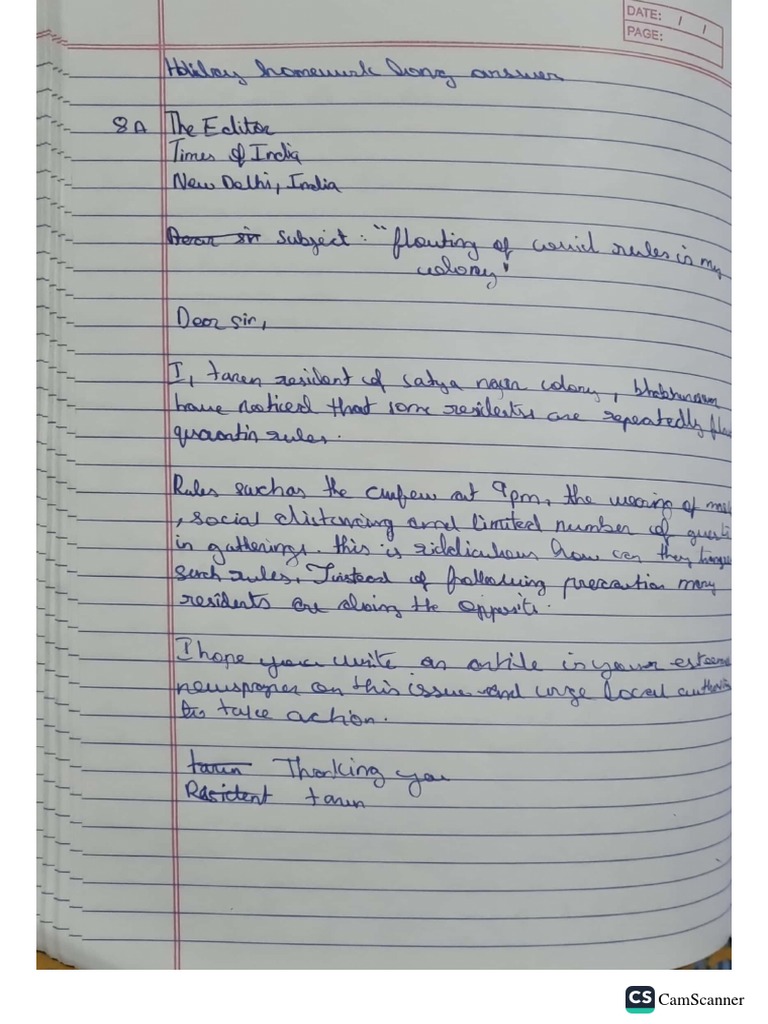 DATE: / /
PAGE:
Holiday homework long answer
8A The Editor
Times of India
New Delhi, India
Dear sir subject : "flouting of covid rules in my
colony"
Dear sir,
I, tarun resident of satya nagar colony,
have noticed that some residents are repeatedly
quarantin rules.
Rules such as the curfew at 9pm, the wearing of
, social distancing and limited number of
in gatherings. this is riddiculous how can they
such rules. Instead of following precaution many
residents are doing the opposite.
I hope you write an artile in your
newspaper on this issue and urge local
to take action.
tarun Thanking you
Resident tarun
CS CamScanner